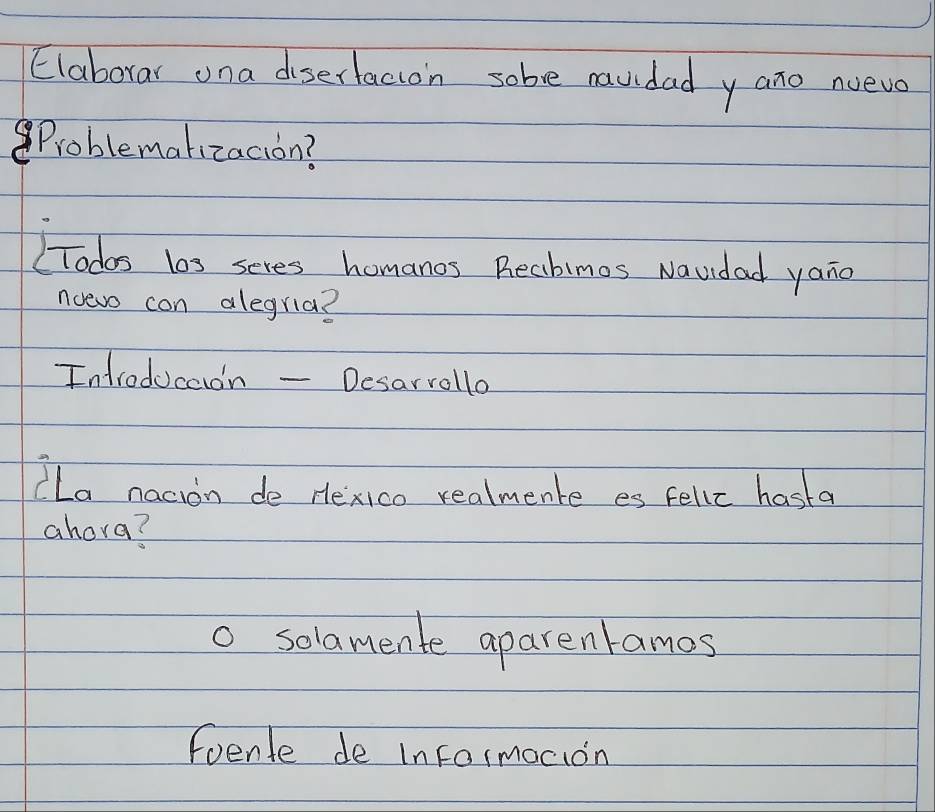 Elaborar una disertación sobre navidad y año nuevo
¿Problematización?
¿Todos los seres humanos Recibimos Navidad y año
nuevo con alegria?
Introducción — Desarrollo
¿La nación de México realmente es feliz hasta
ahora?
O solamente aparentamos
Fuente de Información